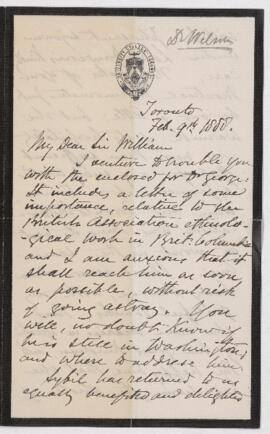 Dr Wilson
UNIVERSITY COLLEGE TORONTO
Toronto
Feb. 9th 1888.
My Dear Sir William
I venture to trouble you
with the enclosed for Dr George.
It includes a letter of some
importance, relative to the
British Association ethnolo-
gical work in Brit. Columbia
and I am anxious that it
shall reach him as soon
as possible, without risk
of going astray. You
will, no doubt, know if
he is still in Washington,
and where to address him.
Sybil has returned to us
equally benefited and delighted